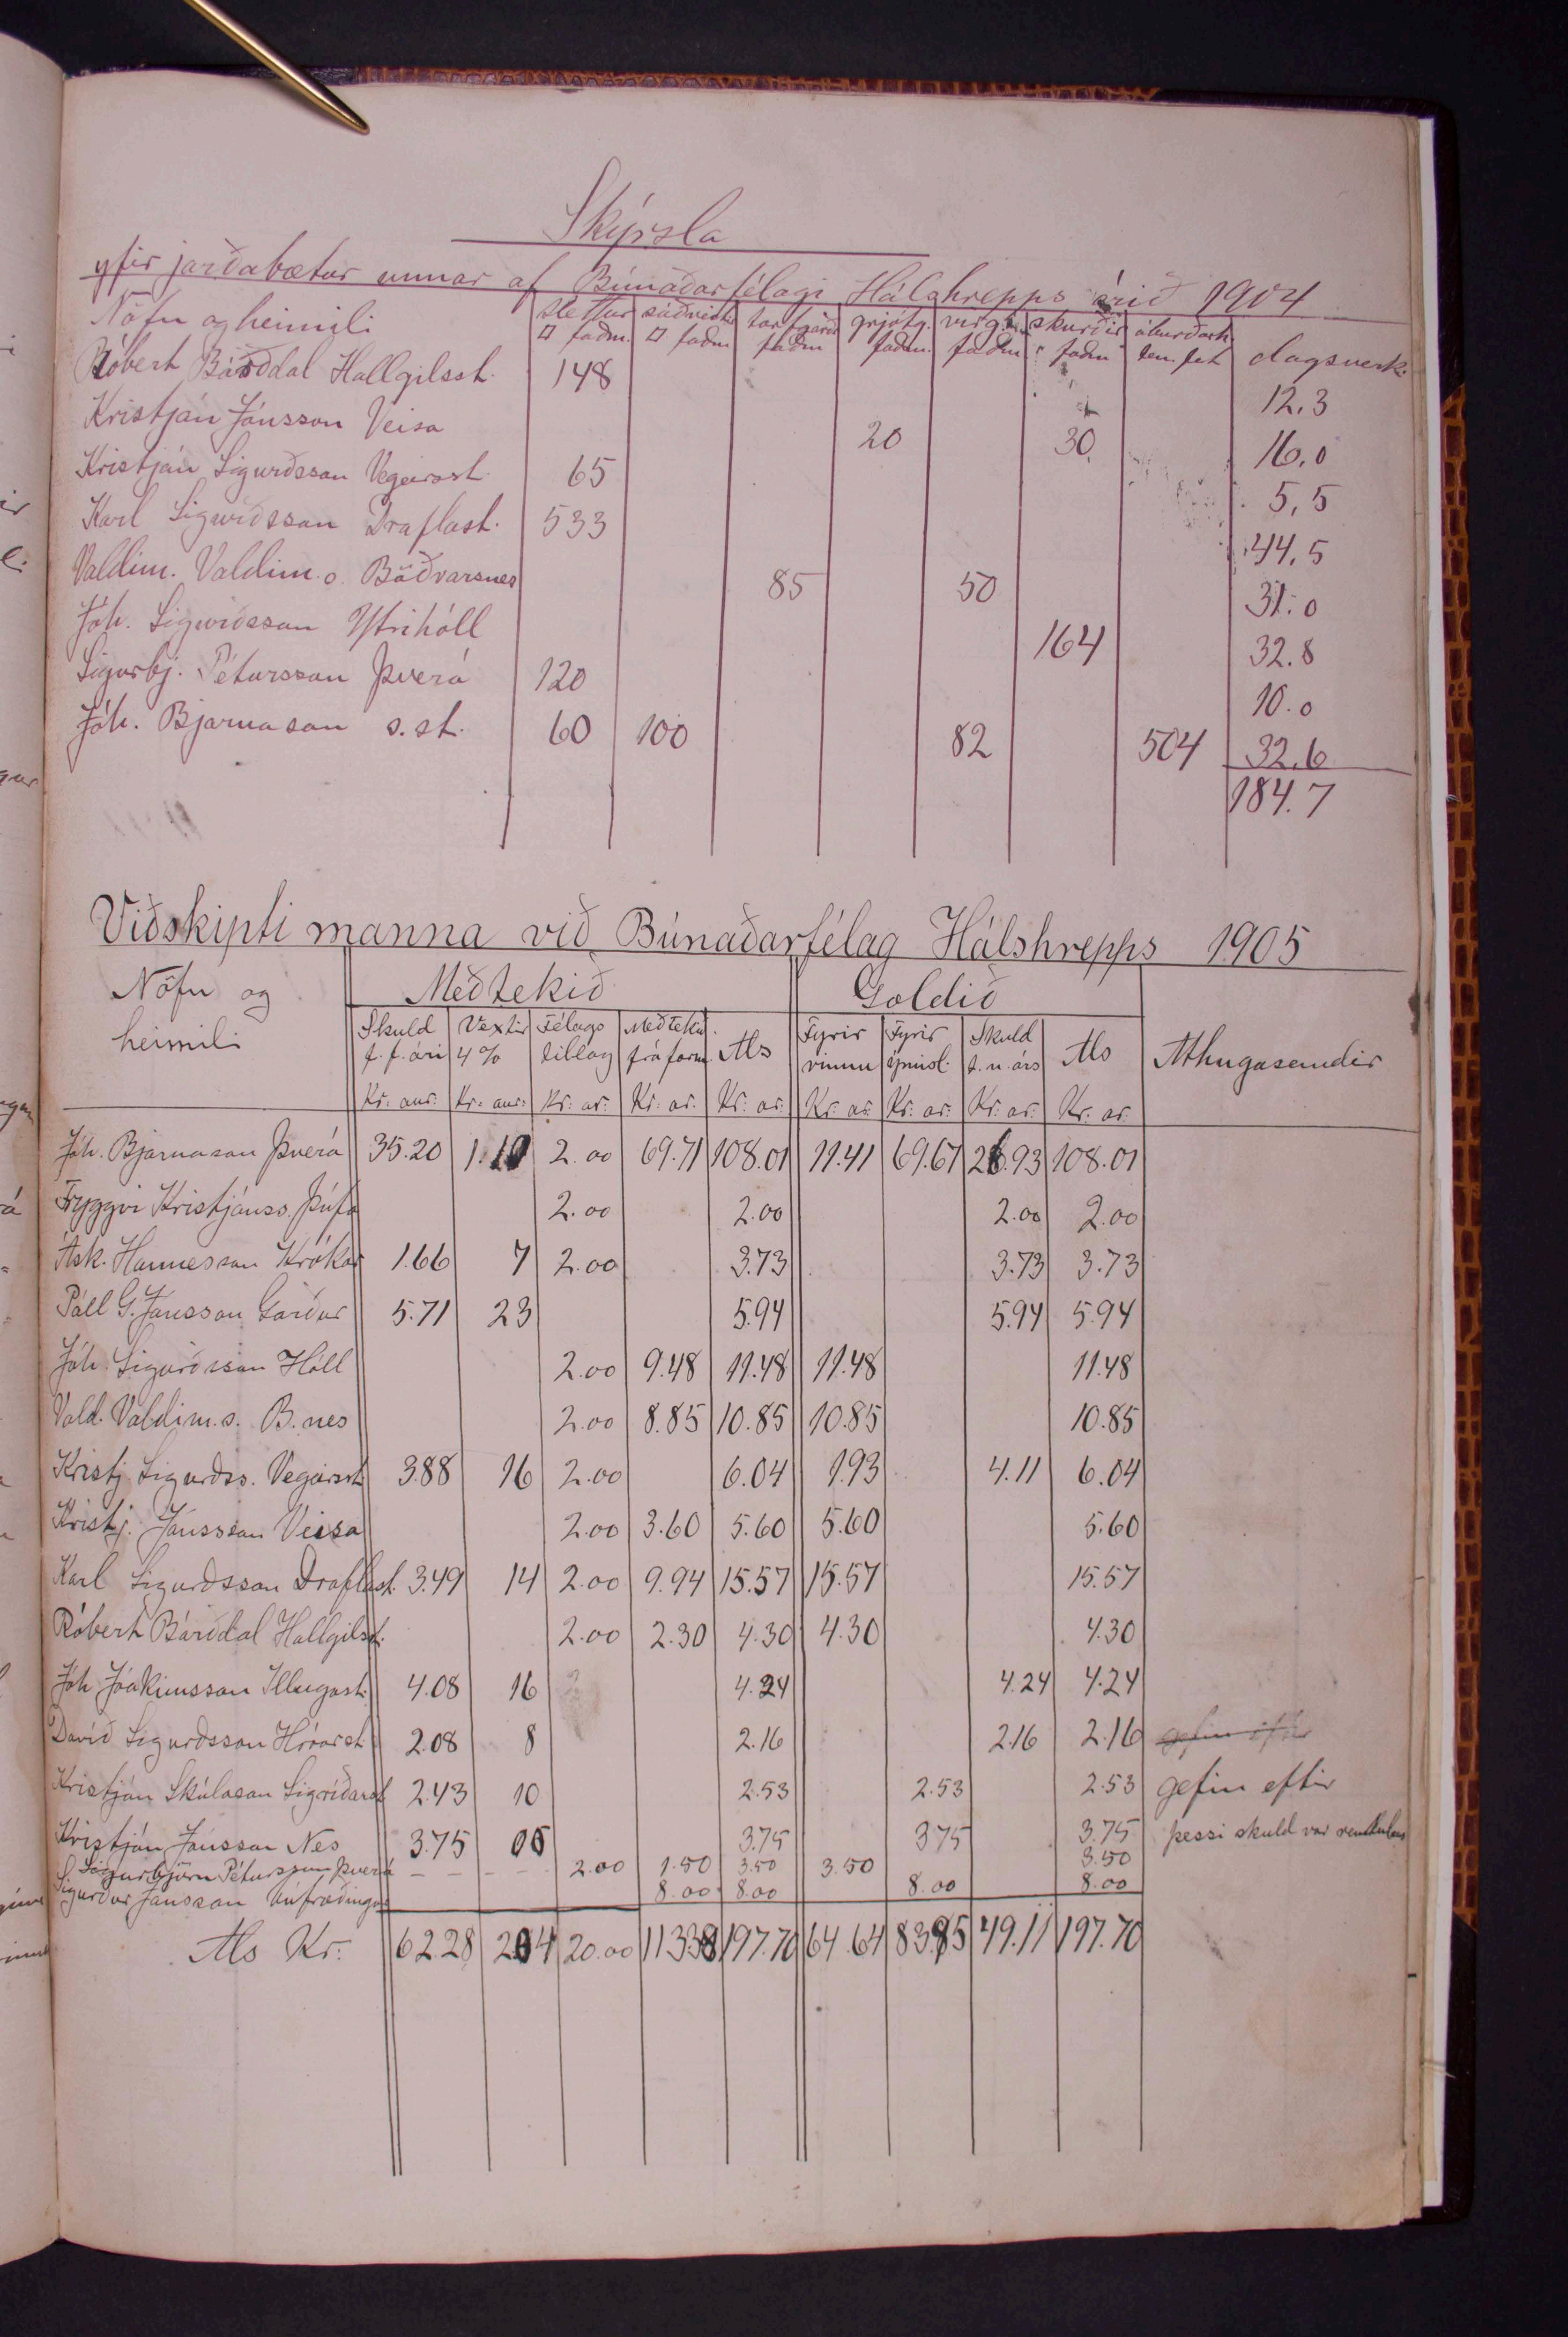 Skýrsla
yfir jarðabætur unnar af Búnaðarfélagi Hálshrepps árið 1904
Nöfn og heimili sléttur □ faðm. sáðreitir □ faðm. torfgarð. faðm grjótg. faðm. virg. faðm skurðir faðm áburðarh. ten. fet dagsverk.
Róbert Bárðdal Hallgilsst. 148 12.3
Kristján Jónsson Veisa 20 30 16.0
Kristján Sigurðsson Vegeirsst. 65 5,5
Karl Sigurðsson Draflast. 533 44,5
Valdim. Valdim.s. Böðvarsnes 85 50 31.0
Jóh. Sigurðsson Ytrihóll 164 32.8
Sigurbj. Pétursson Þverá 120 10.0
Jóh. Bjarnason s.st. 60 100 82 504 32.6
184.7
Viðskipti manna við Búnaðarfélag Hálshrepps 1905
Nöfn og heimili Meðtekið Goldið
Skuld f.f. ári Vextir 4% Félags tillag Meðtekið frá form. Als Fyrir vinnu Fyrir ýmisl. Skuld t.n. árs Als Athugasemdir
Kr. aur. Kr. aur. Kr. ar. Kr. ar. Kr. ar. Kr. ar. Kr. ar. Kr. ar. Kr. ar.
Jóh. Bjarnason Þverá 35.20 1.10 2.00 69.71 108.01 11.41 69.67 26.93 108.01
Tryggvi Kristjánss. Þúfa 2.00 2.00 2.00 2.00
Ásk. Hannesson Krókar 1.66 7 2.00 3.73 3.73 3.73
Páll G. Jónsson Garður 5.71 23 5.94 5.94 5.94
Jóh. Sigurðsson Hóll 2.00 9.48 11.48 11.48 11.48
Vald. Valdim.s. B.nes 2.00 8.85 10.85 10.85 10.85
Kristj. Sigurðss. Vegeirsst. 3.88 16 2.00 6.04 1.93 4.11 6.04
Kristj. Jónsson Veisa 2.00 3.60 5.60 5.60 5.60
Karl Sigurðsson Draflast. 3.49 14 2.00 9.94 15.57 15.57 15.57
Róbert Bárðdal Hallgilst. 2.00 2.30 4.30 4.30 4.30
Jóh Jóakimsson Illugast. 4.08 16 4.24 4.24 4.24
Davíð Sigurðsson Hróarst. 2.08 8 2.16 2.16 2.16 gefin eftir
Kristján Skúlason Sigríðarst 2.43 10 2.53 2.53 2.53 gefin eftir
Kristján Jónsson Nes 3.75 3.75 3.75 3.75 þessi skuld var
Sigurbjörn Pétursson Þverá – – – – 2.00 1.50 3.50 3.50 3.50
Sigurður Jónsson búfræðingur 8.00 8.00 8.00 8.00
Als Kr. 62.28 204 20.00 113.38 197.70 64.64 83.95 49.11 197.70